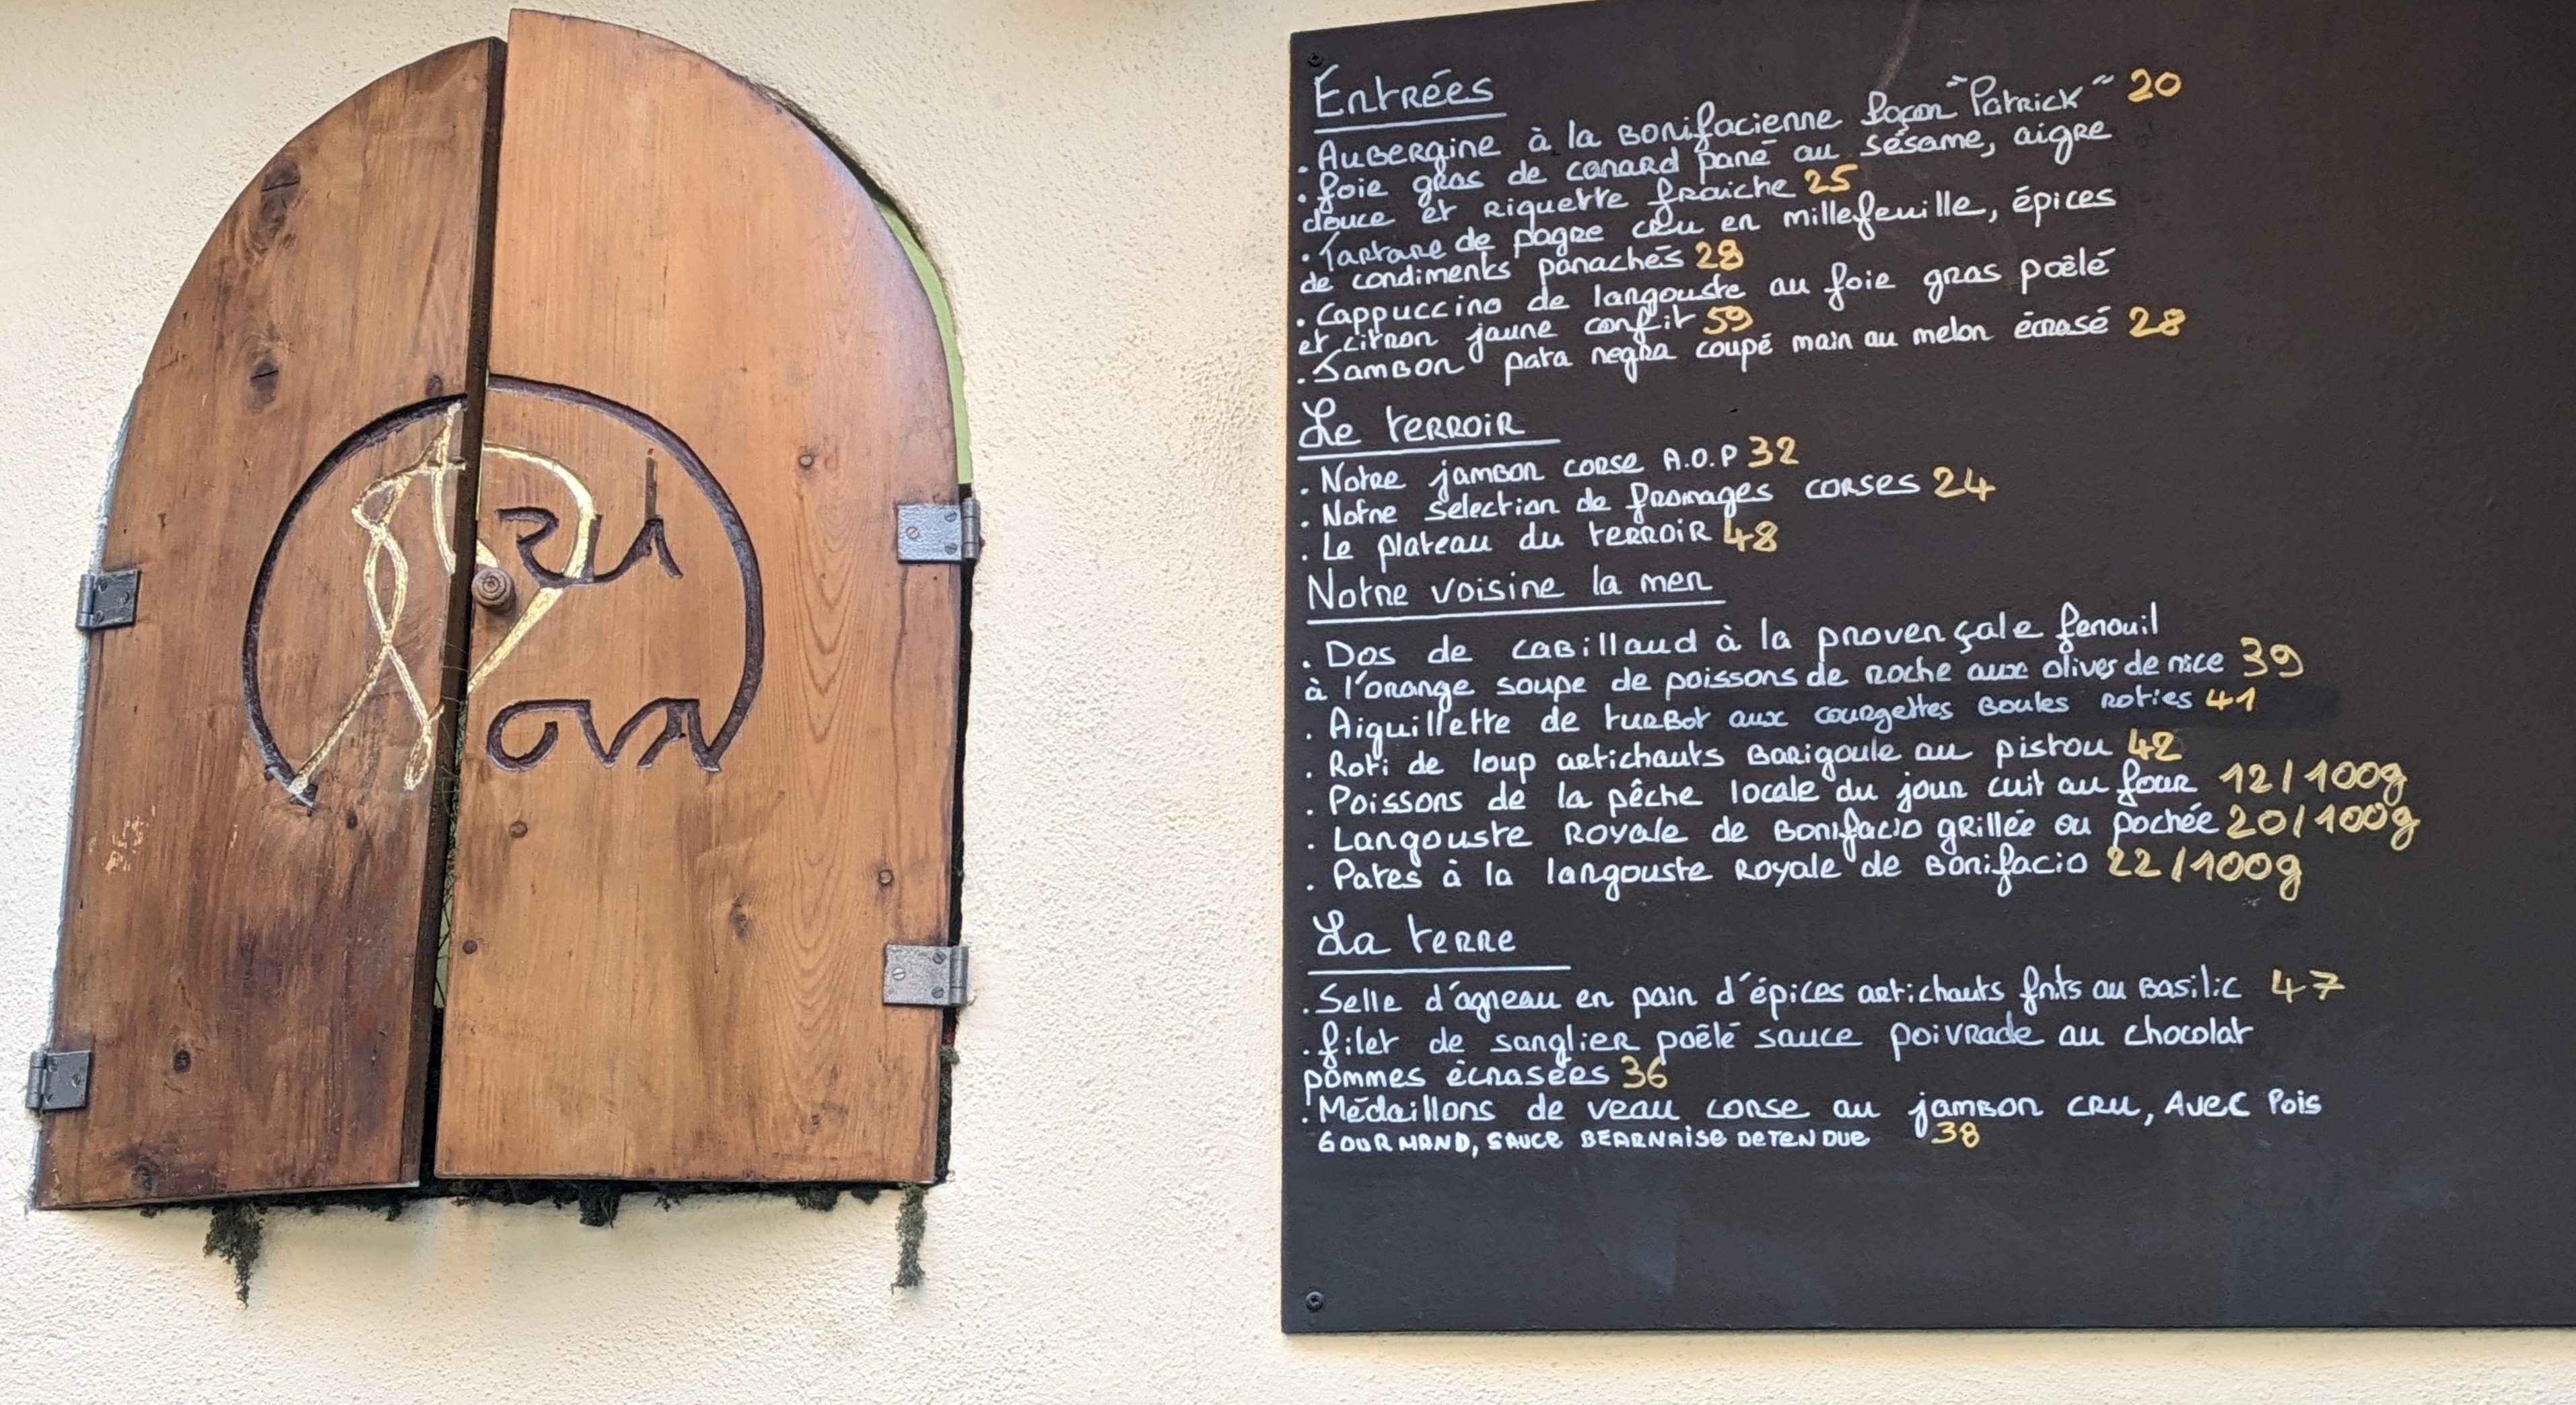 Entrées
. Aubergine à la Bonifacienne façon "Patrick" 20
. foie gras de canard pané au sésame, aigre
douce et riquette fraiche 25
. Tartare de pagre cru en millefeuille, épices
de condiments panachés 28
. Cappuccino de langouste au foie gras poêlé
et citron jaune confit 59
. Jambon pata negra coupé main au melon écrasé 28
Le terroir
. Notre jambon corse A.O.P 32
. Notre selection de fromages corses 24
. Le plateau du terroir 48
Notre voisine la mer
. Dos de cabillaud à la provençale fenouil
à l'orange soupe de poissons de roche aux olives de nice 39
. Aiguillette de turbot aux courgettes boules roties 41
. Roti de loup artichauts barigoule au pistou 42
. Poissons de la pêche locale du jour cuit au four 12/100g
. Langouste Royale de Bonifacio grillée ou pochée 20/100g
. Pates à la langouste Royale de Bonifacio 22/100g
La terre
. Selle d'agneau en pain d'épices artichauts frits au basilic 47
. filet de sanglier poêlé sauce poivrade au chocolat
pommes écrasées 36
. Médaillons de veau corse au jambon cru, AVEC Pois
GOURMAND, SAUCE BEARNAISE DETENDUE 38